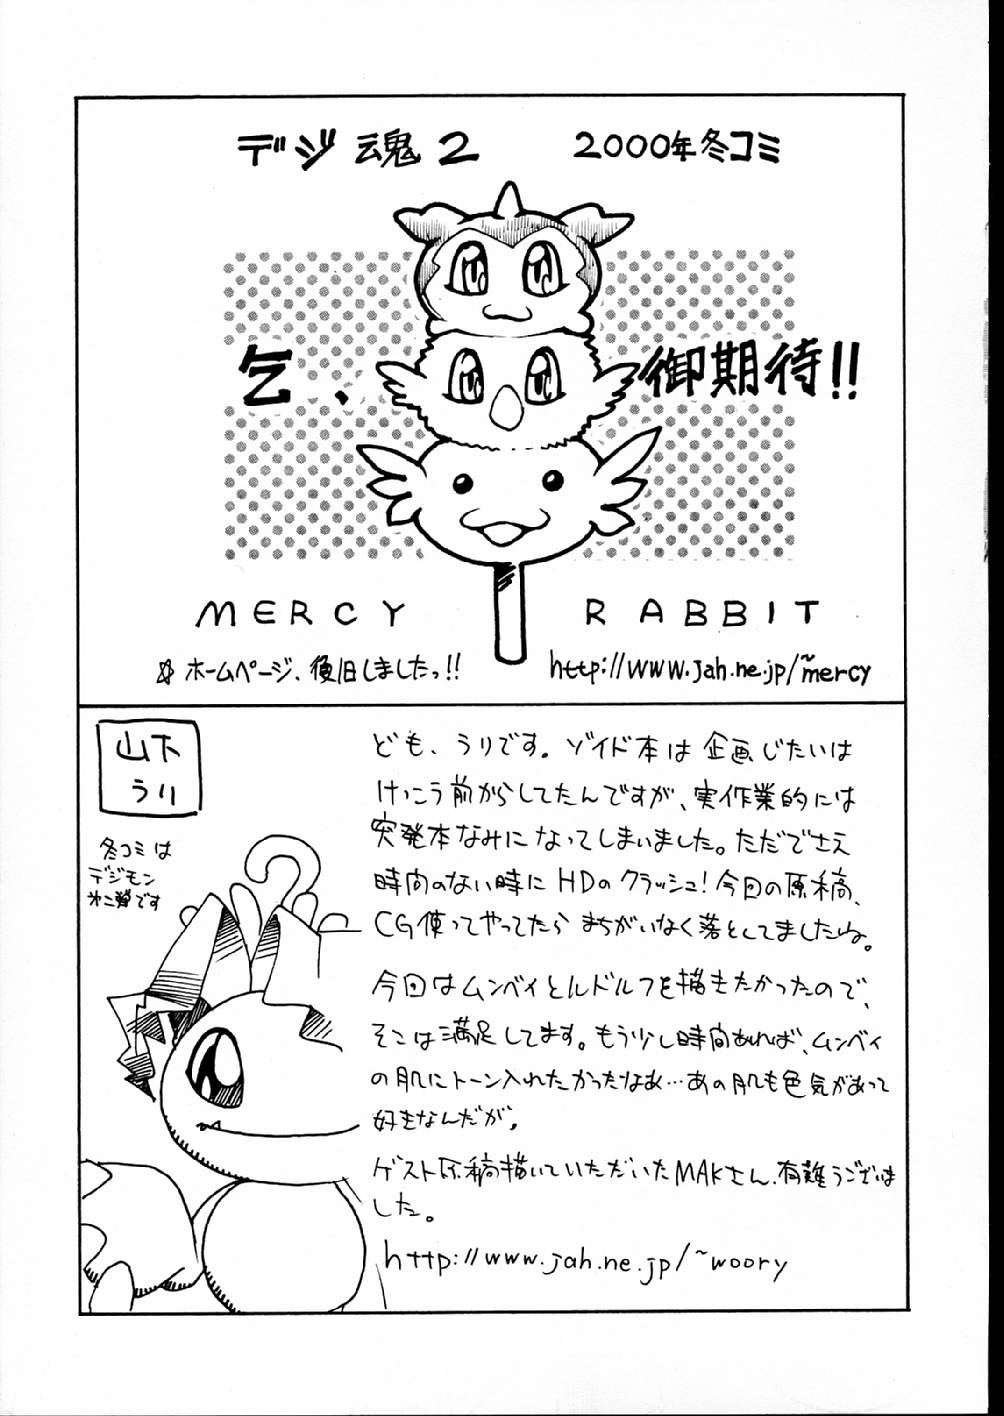 デジ魂2 2000年冬コミ
乞、御期待!!
MERCY RABBIT
☆ホームページ、復旧しましたっ!! http://www.jah.ne.jp/~mercy
山下
うり
冬コミは
デジモン
オニ弾です
ども、うりです。ゾイド本は企画じたいは
けっこう前からしてたんですが、実作業的には
突発本なみになってしまいました。ただでさえ
時間のない時にHDのクラッシュ!今回の原稿、
CG使ってやってたらまちがいなく落としてましたね。
今回はムンベイとルドルフを描きたかったので、
そこは満足してます。もう少し時間あれば、ムンベイ
の肌にトーン入れたかったなあ…あの肌も色気があって
好きなんだが。
ゲスト原稿描いていただいたMAKさん、有難うございま
した。
http://www.jah.ne.jp/~woory